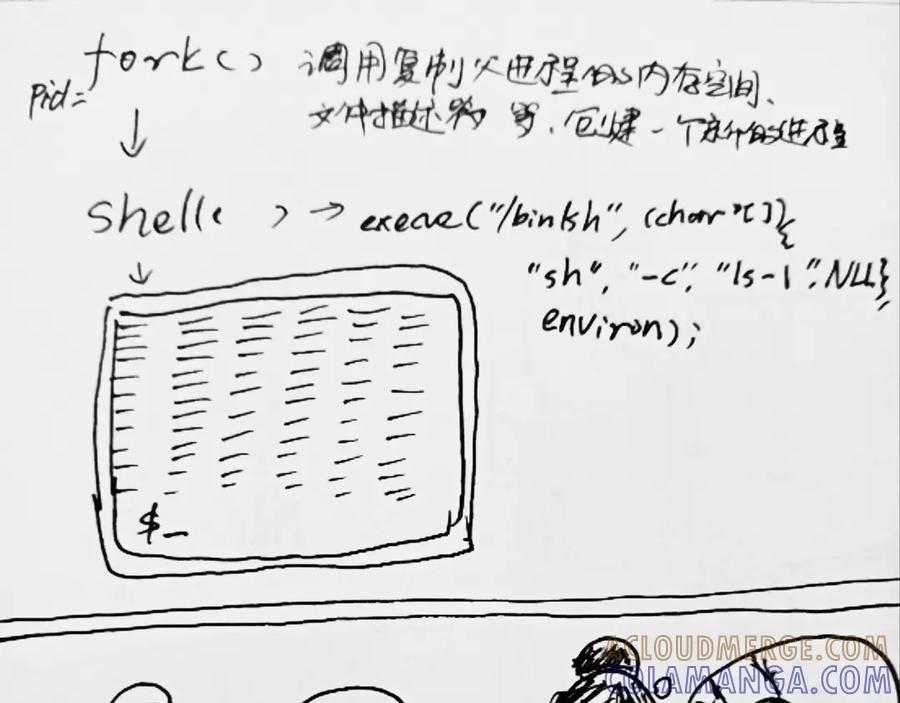 fork() 调用复制父进程的内存空间、
pid=
文件描述符 等、创建一个新的进程
shell( ) → execve("/bin/sh", (char *[]){
"sh", "-c", "ls -l", NULL},
environ);
$_
ACLOUDMERGE.COM
COLAMANGA.COM